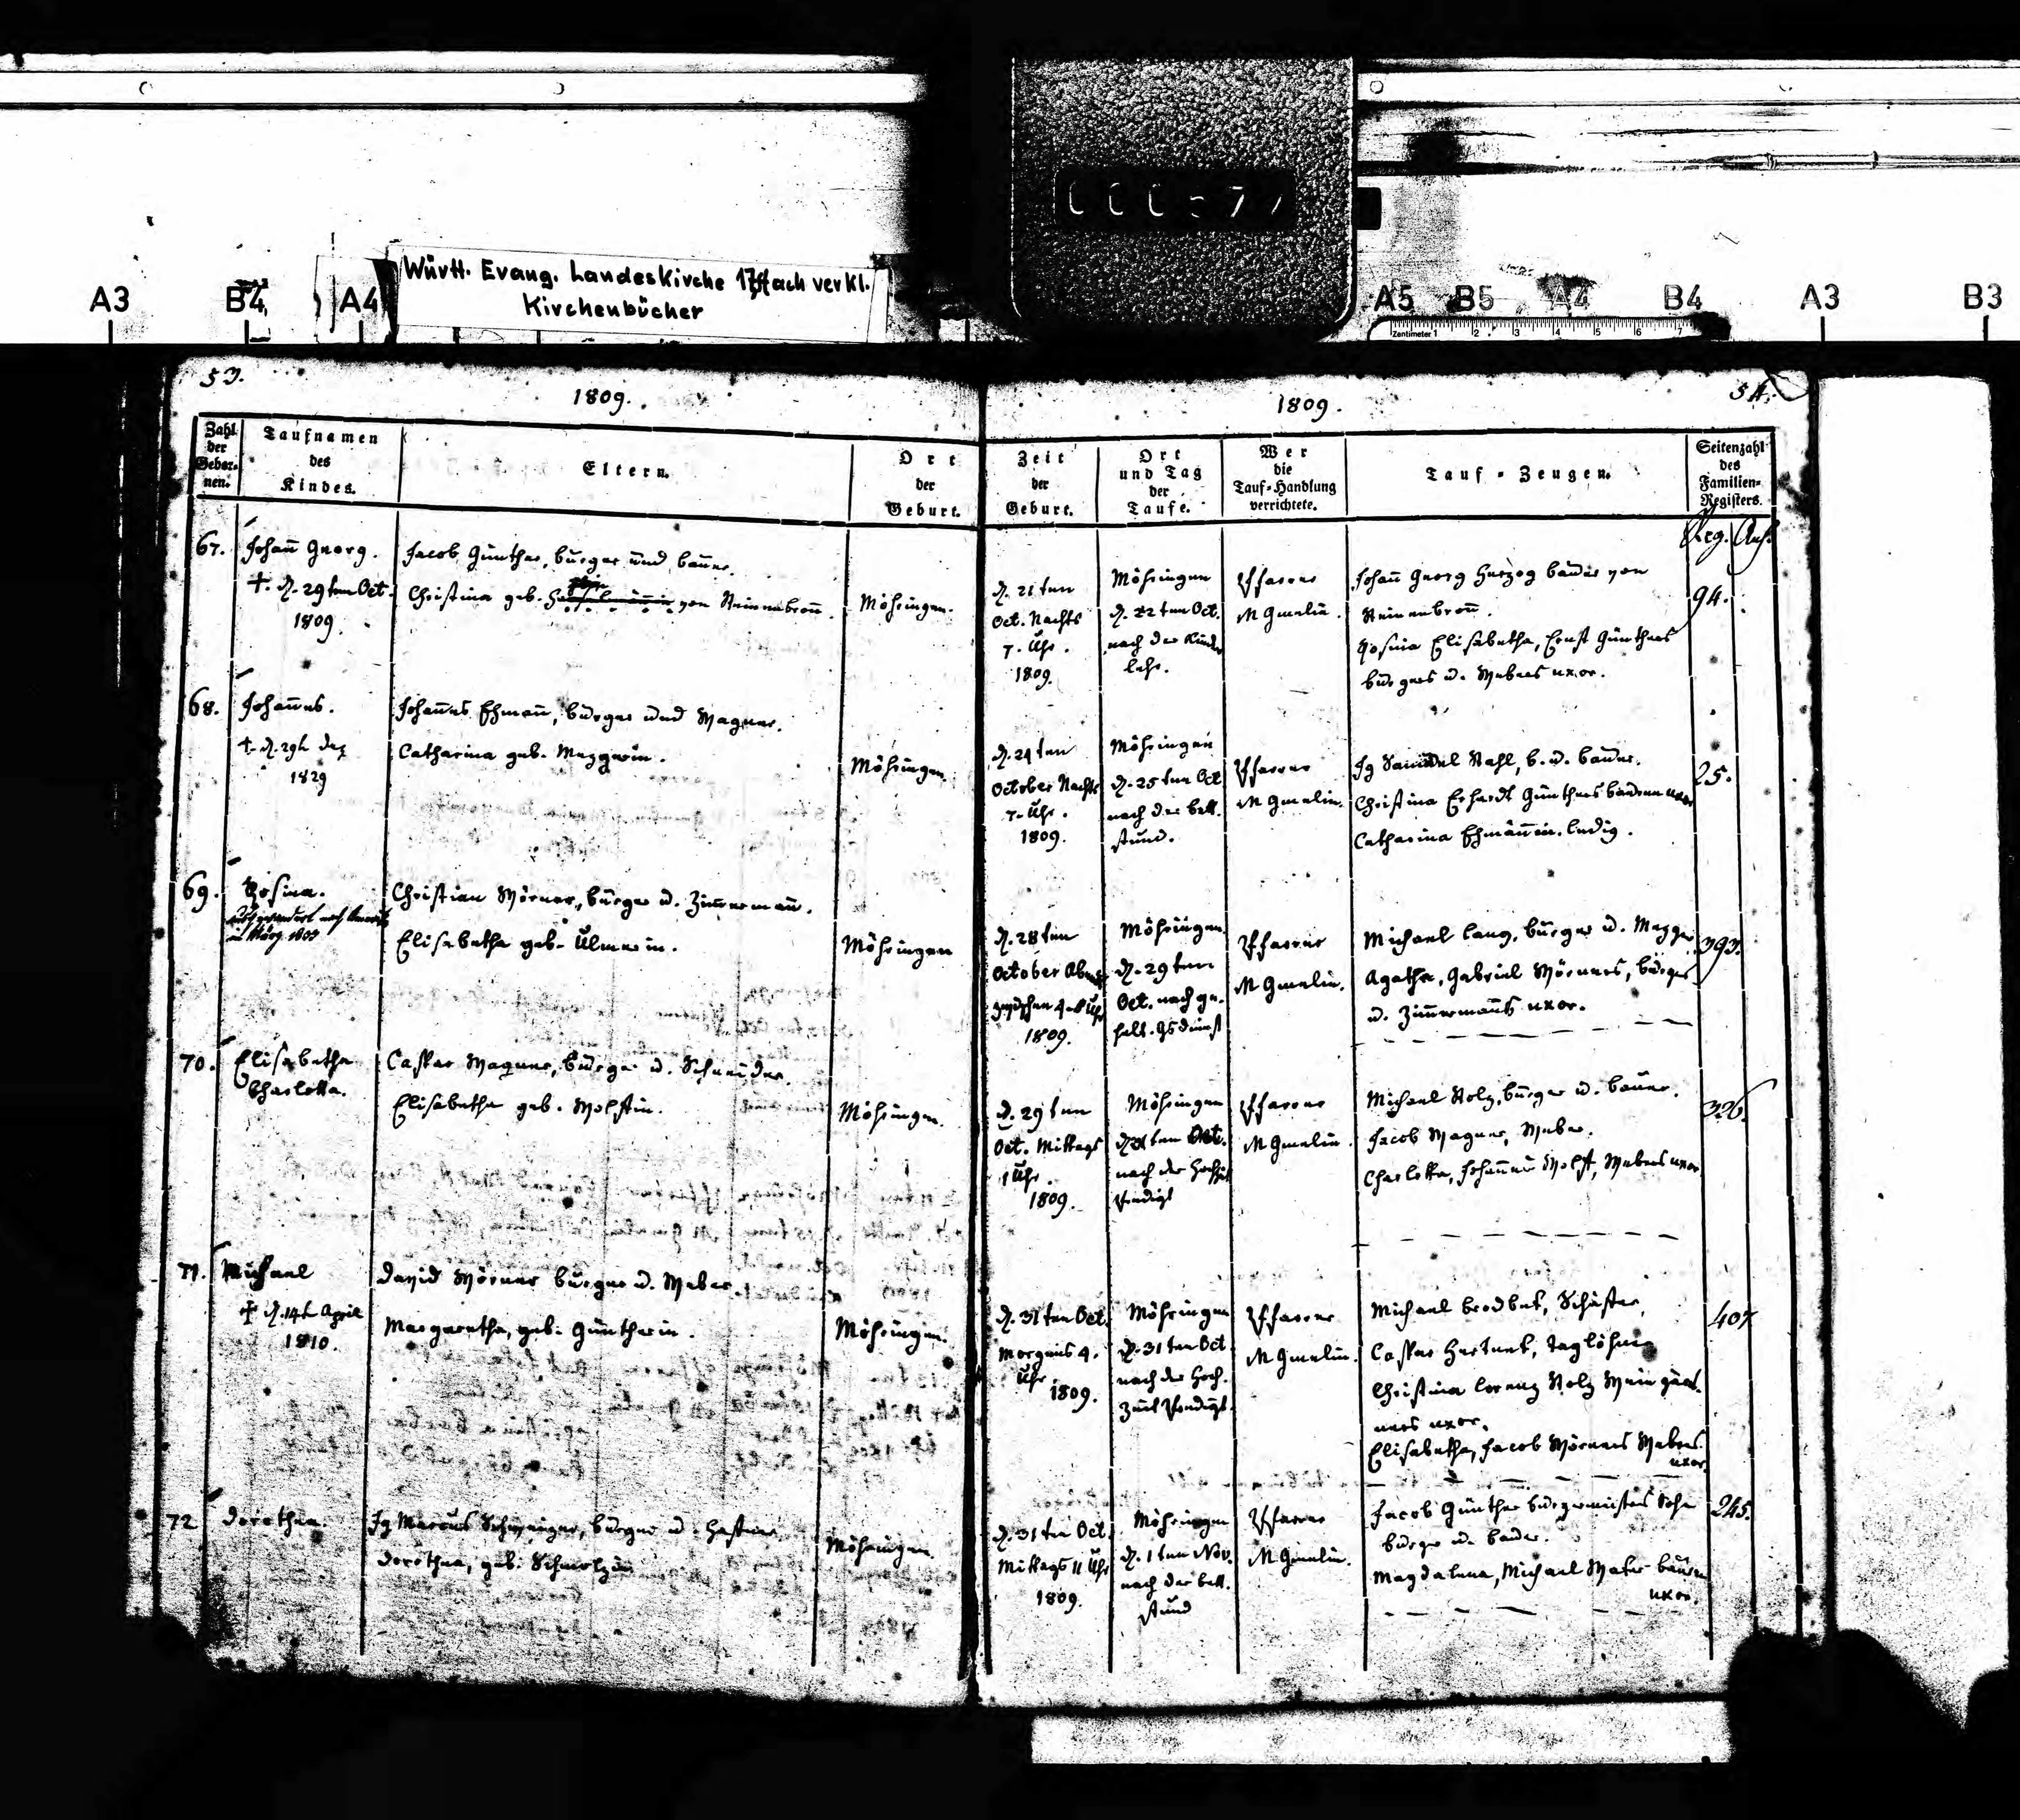 A3 B4 A4
Württ. Evang. Landeskirche 17fach verkl.
Kirchenbücher
A5 B5 A4 B4 A3 B3
Zentimeter 1 2 3 4 5 6 7
53.
1809.
Zahl der Gebor-nen.
Taufnamen des Kindes.
Eltern.
Ort der Geburt.
67.
Johan̄ Georg.
+. d. 29ten Oct.
1809.
Jacob Günther, burger und baur.
Christina geb. von Steinenbron̄.
Möhringen.
68.
Johan̄es.
+. d. 29t Dez
1829
Johan̄es Ehman̄, burger und Wagner.
Catharina geb. Mezgerin.
Möhringen.
69.
Rosina.
Christian Wörner, burger u. Zim̄erman̄.
Elisabetha geb. Ulmerin.
Möhringen
70.
Elisabetha
Charlotta.
Caspar Wagner, burger u. Schneider.
Elisabetha geb. Wolfin.
Möhringen.
71.
Michael
+ d. 14t April
1810.
David Wörner burger u. Weber
Margaretha, geb. Güntherin.
Möhringen.
72
Dorothea.
Jg Marcus Schweizer, burger u.
Dorothea, geb.
Möhringen.
54.
1809.
Zeit der Geburt.
Ort und Tag der Taufe.
Wer die Tauf-Handlung verrichtete.
Tauf-Zeugen.
Seitenzahl des Familien-Registers.
Reg.
d. 21ten
Oct. Nachts
7. Uhr.
1809.
Möhringen
d. 22ten Oct.
nach der Kinder
lehr.
Pfarrer
M Gmelin.
Johan̄ Georg Herzog baur von
Steinenbron̄.
Rosina Elisabetha, Ernst Günthers
burgers u. Webers uxor.
94.
d. 24ten
October Nachts
7. Uhr.
1809.
Möhringen
d. 25ten Oct
nach der bett.
stund.
Pfarrer
M Gmelin.
Jg Samuel Stahl, b. u. baur.
Christina Erhardt Günthers bauren uxor
Catharina Ehmän̄in. ledig.
25.
d. 28ten
October
zwischen Uhr
1809.
Möhringen
d. 29ten
Oct. nach ge-
halt. Gsdienst
Pfarrer
M Gmelin.
Michael Lang, burger u. Mezger
Agatha, Gabriel Wörners, burger
u. Zim̄ermanns uxor.
393.
d. 29ten
Oct. Mittags
1 Uhr.
1809.
Möhringen
d. 31ten Oct.
nach der Hochzeit
Predigt
Pfarrer
M Gmelin.
Michael Stolz, burger u. baur.
Jacob Wagner, Weber.
Charlotta, Johan̄es Wolf, Webers uxor
326.
d. 31ten Oct.
Morgens 4.
Uhr.
1809.
Möhringen
d. 31ten Oct
nach der Hoch-
zeit Predigt.
Pfarrer
M Gmelin.
Michael Brodbek, Schäfer,
Caspar Hertnek, Taglöhner
Christina Lorenz Stolz Weingärt-
ners uxor.
Elisabetha, Jacob Wörners Webers
uxor.
407
d. 31ten Oct.
Mittags 11 Uhr
1809.
Möhringen
d. 1ten Nov.
nach der bett.
stund
Pfarrer
M Gmelin.
Jacob Günther burgermeisters Sohn
burger u. baur.
Magdalena, Michael bauren
uxor.
245.